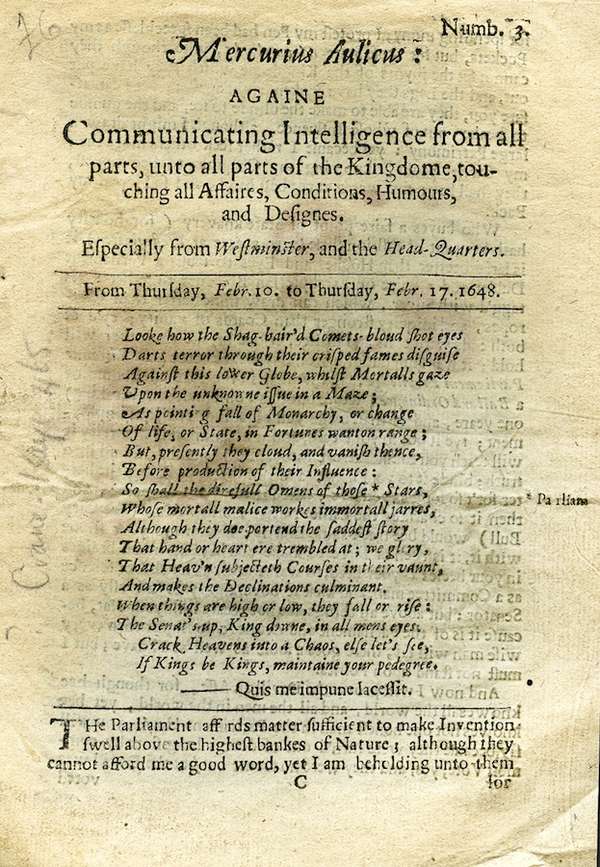 Numb. 3.
Mercurius Aulicus:
AGAINE
Communicating Intelligence from all
parts, unto all parts of the Kingdome, tou-
ching all Affaires, Conditions, Humours,
and Designes.
Especially from Westminster, and the Head-Quarters.
From Thursday, Febr. 10. to Thursday, Febr. 17. 1648.
Looke how the Shag-hair'd Comets-bloud shot eyes
Darts terror through their crisped fames disguise
Against this lower Globe, whilst Mortalls gaze
Upon the unknowne issue in a Maze;
As pointing fall of Monarchy, or change
Of life, or State, in Fortunes wanton range;
But, presently they cloud, and vanish thence,
Before production of their Influence:
So shall the direfull Omens of those * Stars,
* Parliam
Whose mortall malice workes immortall jarres,
Although they doe portend the saddest story
That hand or heart ere trembled at; we glory,
That Heav'n subjecteth Courses in their vaunt,
And makes the Declinations culminant.
When things are high or low, they fall or rise:
The Senat's up, King downe, in all mens eyes.
Crack Heavens into a Chaos, else let's see,
If Kings be Kings, maintaine your pedegree.
Quis me impune lacessit.
THe Parliament aff rds matter sufficient to make Invention
swell above the highest bankes of Nature; although they
cannot afford me a good word, yet I am beholding unto them
C for